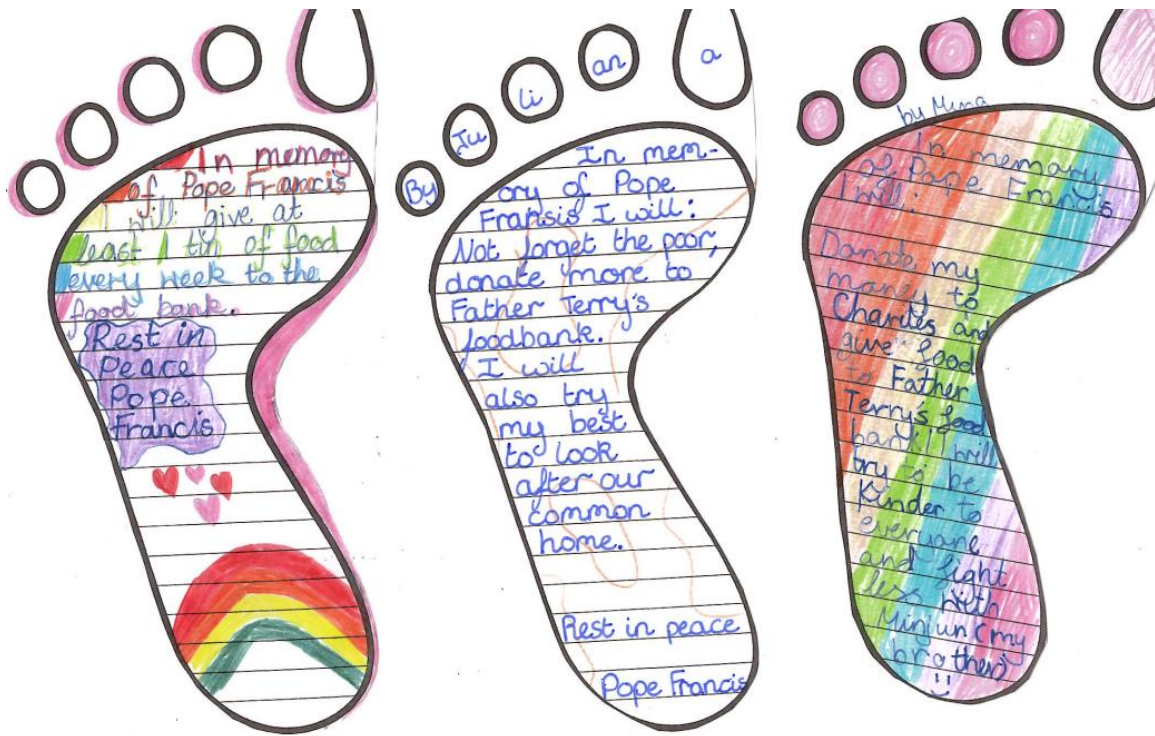 In memory
of Pope Francis
I will give at
least 1 tin of food
every week to the
food bank.
Rest in
Peace
Pope
Francis
By Ju li an a
In mem-
ory of Pope
Fransis I will:
Not forget the poor,
donate more to
Father Terry's
foodbank.
I will
also try
my best
to look
after our
common
home.
Rest in peace
Pope Francis
by Mina
In memory
of Pope Francis
I will:
Donate my
money to
Charites and
give food
to Father
Terry's food
bank. I will
try to be
Kinder to
everyone
and fight
less with
Minjun (my
brother)